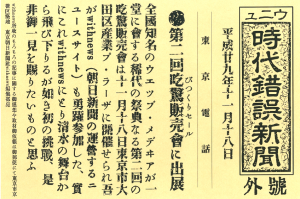 ユニウ
時代錯誤新聞
外號
平成廿九年十一月十八日
東京電話
第二回吃驚販売會に出展
びつくりセール
全國知名のウェッブ・メデヰアが一
堂に會する稀代の祭典なる第二回の
吃驚販売會は十一月十八日東京市大
田区産業プラーザに開催せられ吾
がwithnews（朝日新聞の運営するニ
ュースサイト）も勇躍参加した、實
にこれwithnewsにとり清水の舞台か
ら飛び下りるが如き初の挑戰、是
非御一見を賜りたいものと思ふ